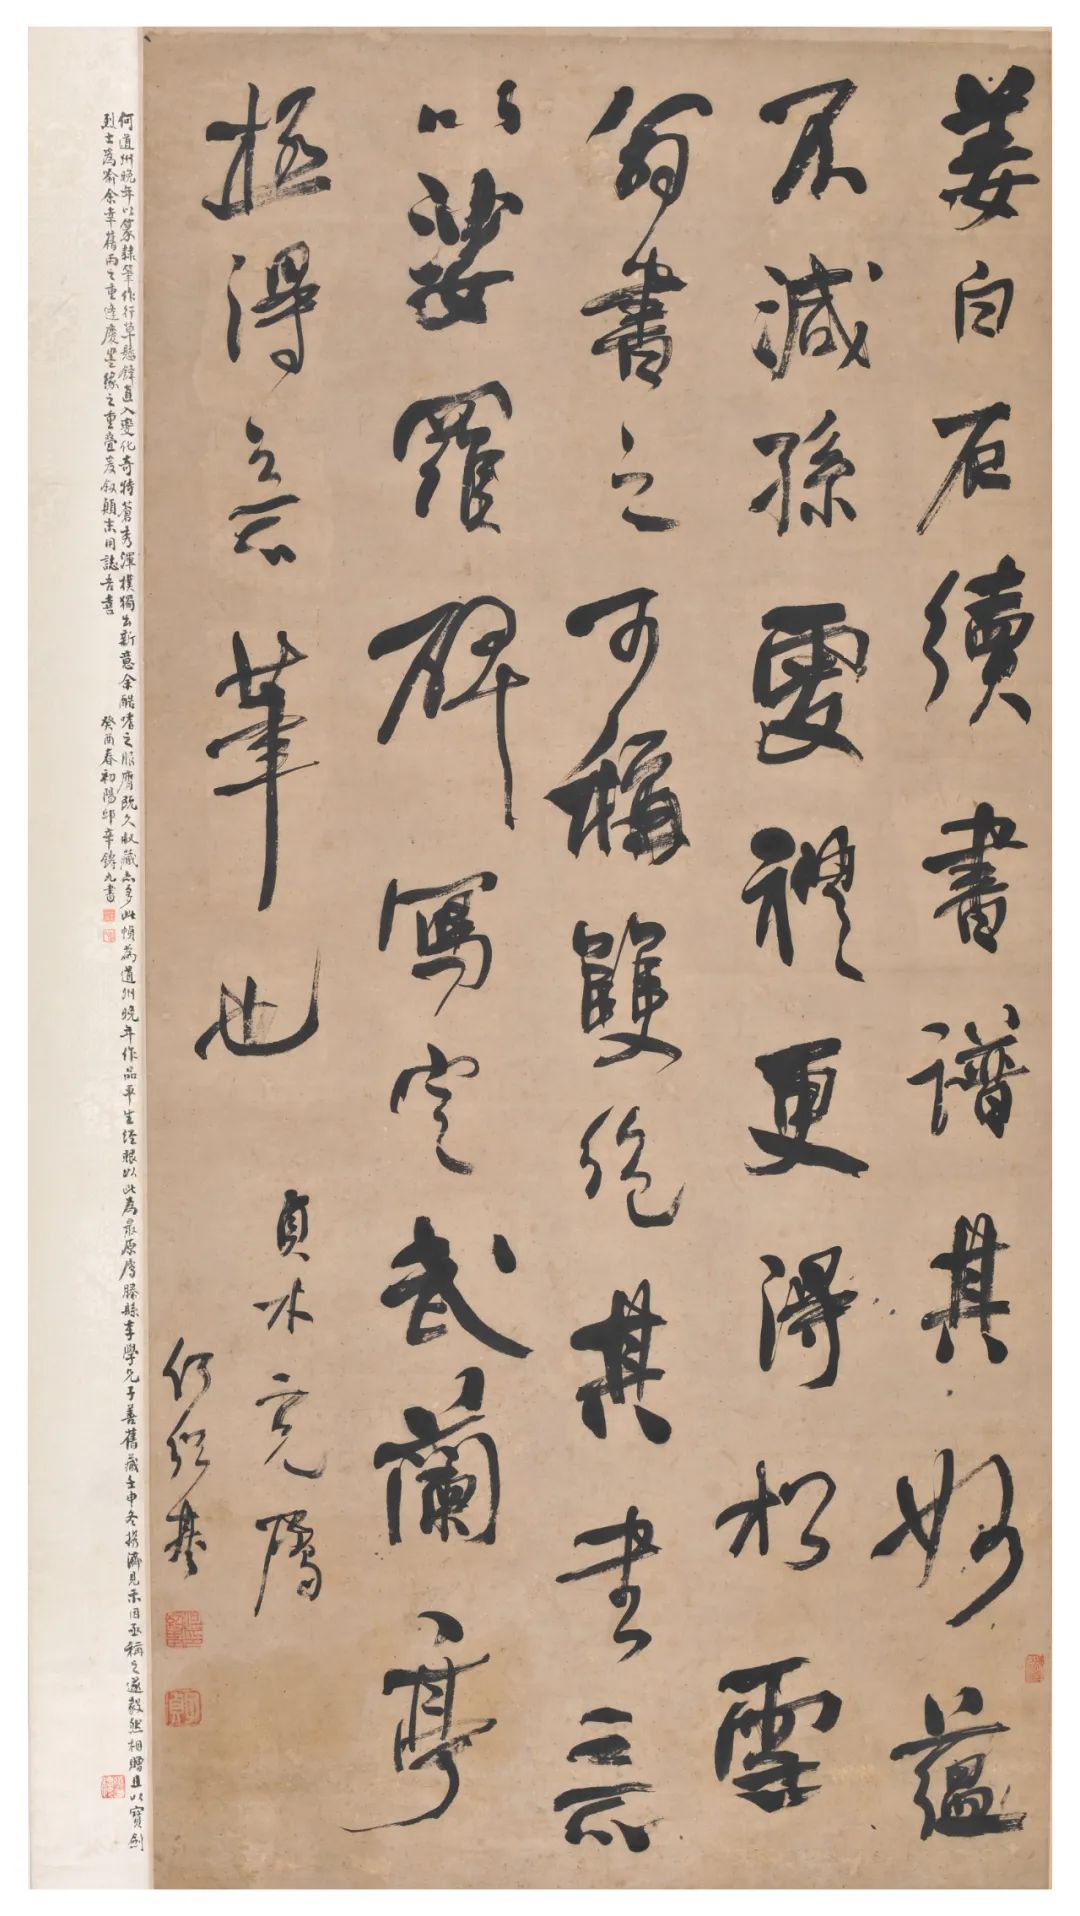 姜白石續書譜其妙蘊
不減孫虔禮更得松雪
翁書之可稱雙絕其書意
以娑羅碑寫定武蘭亭
極得意筆也
貞木兄屬
何紹基
何道州晚年以篆隸筆作行草懸鋒直入變化奇特蒼秀渾樸獨出新意余酷嗜之服膺既久收藏亦多此幀為道州晚年作品平生經眼以此為最原為滕縣李學兄子善舊藏壬申冬攜濟見示因亟稱之遂毅然相贈且以寶劍
烈士為喻余幸舊雨之重逢慶墨緣之重疊爰叙顛末用誌吾喜
癸酉春初陽邱辛鑄九書